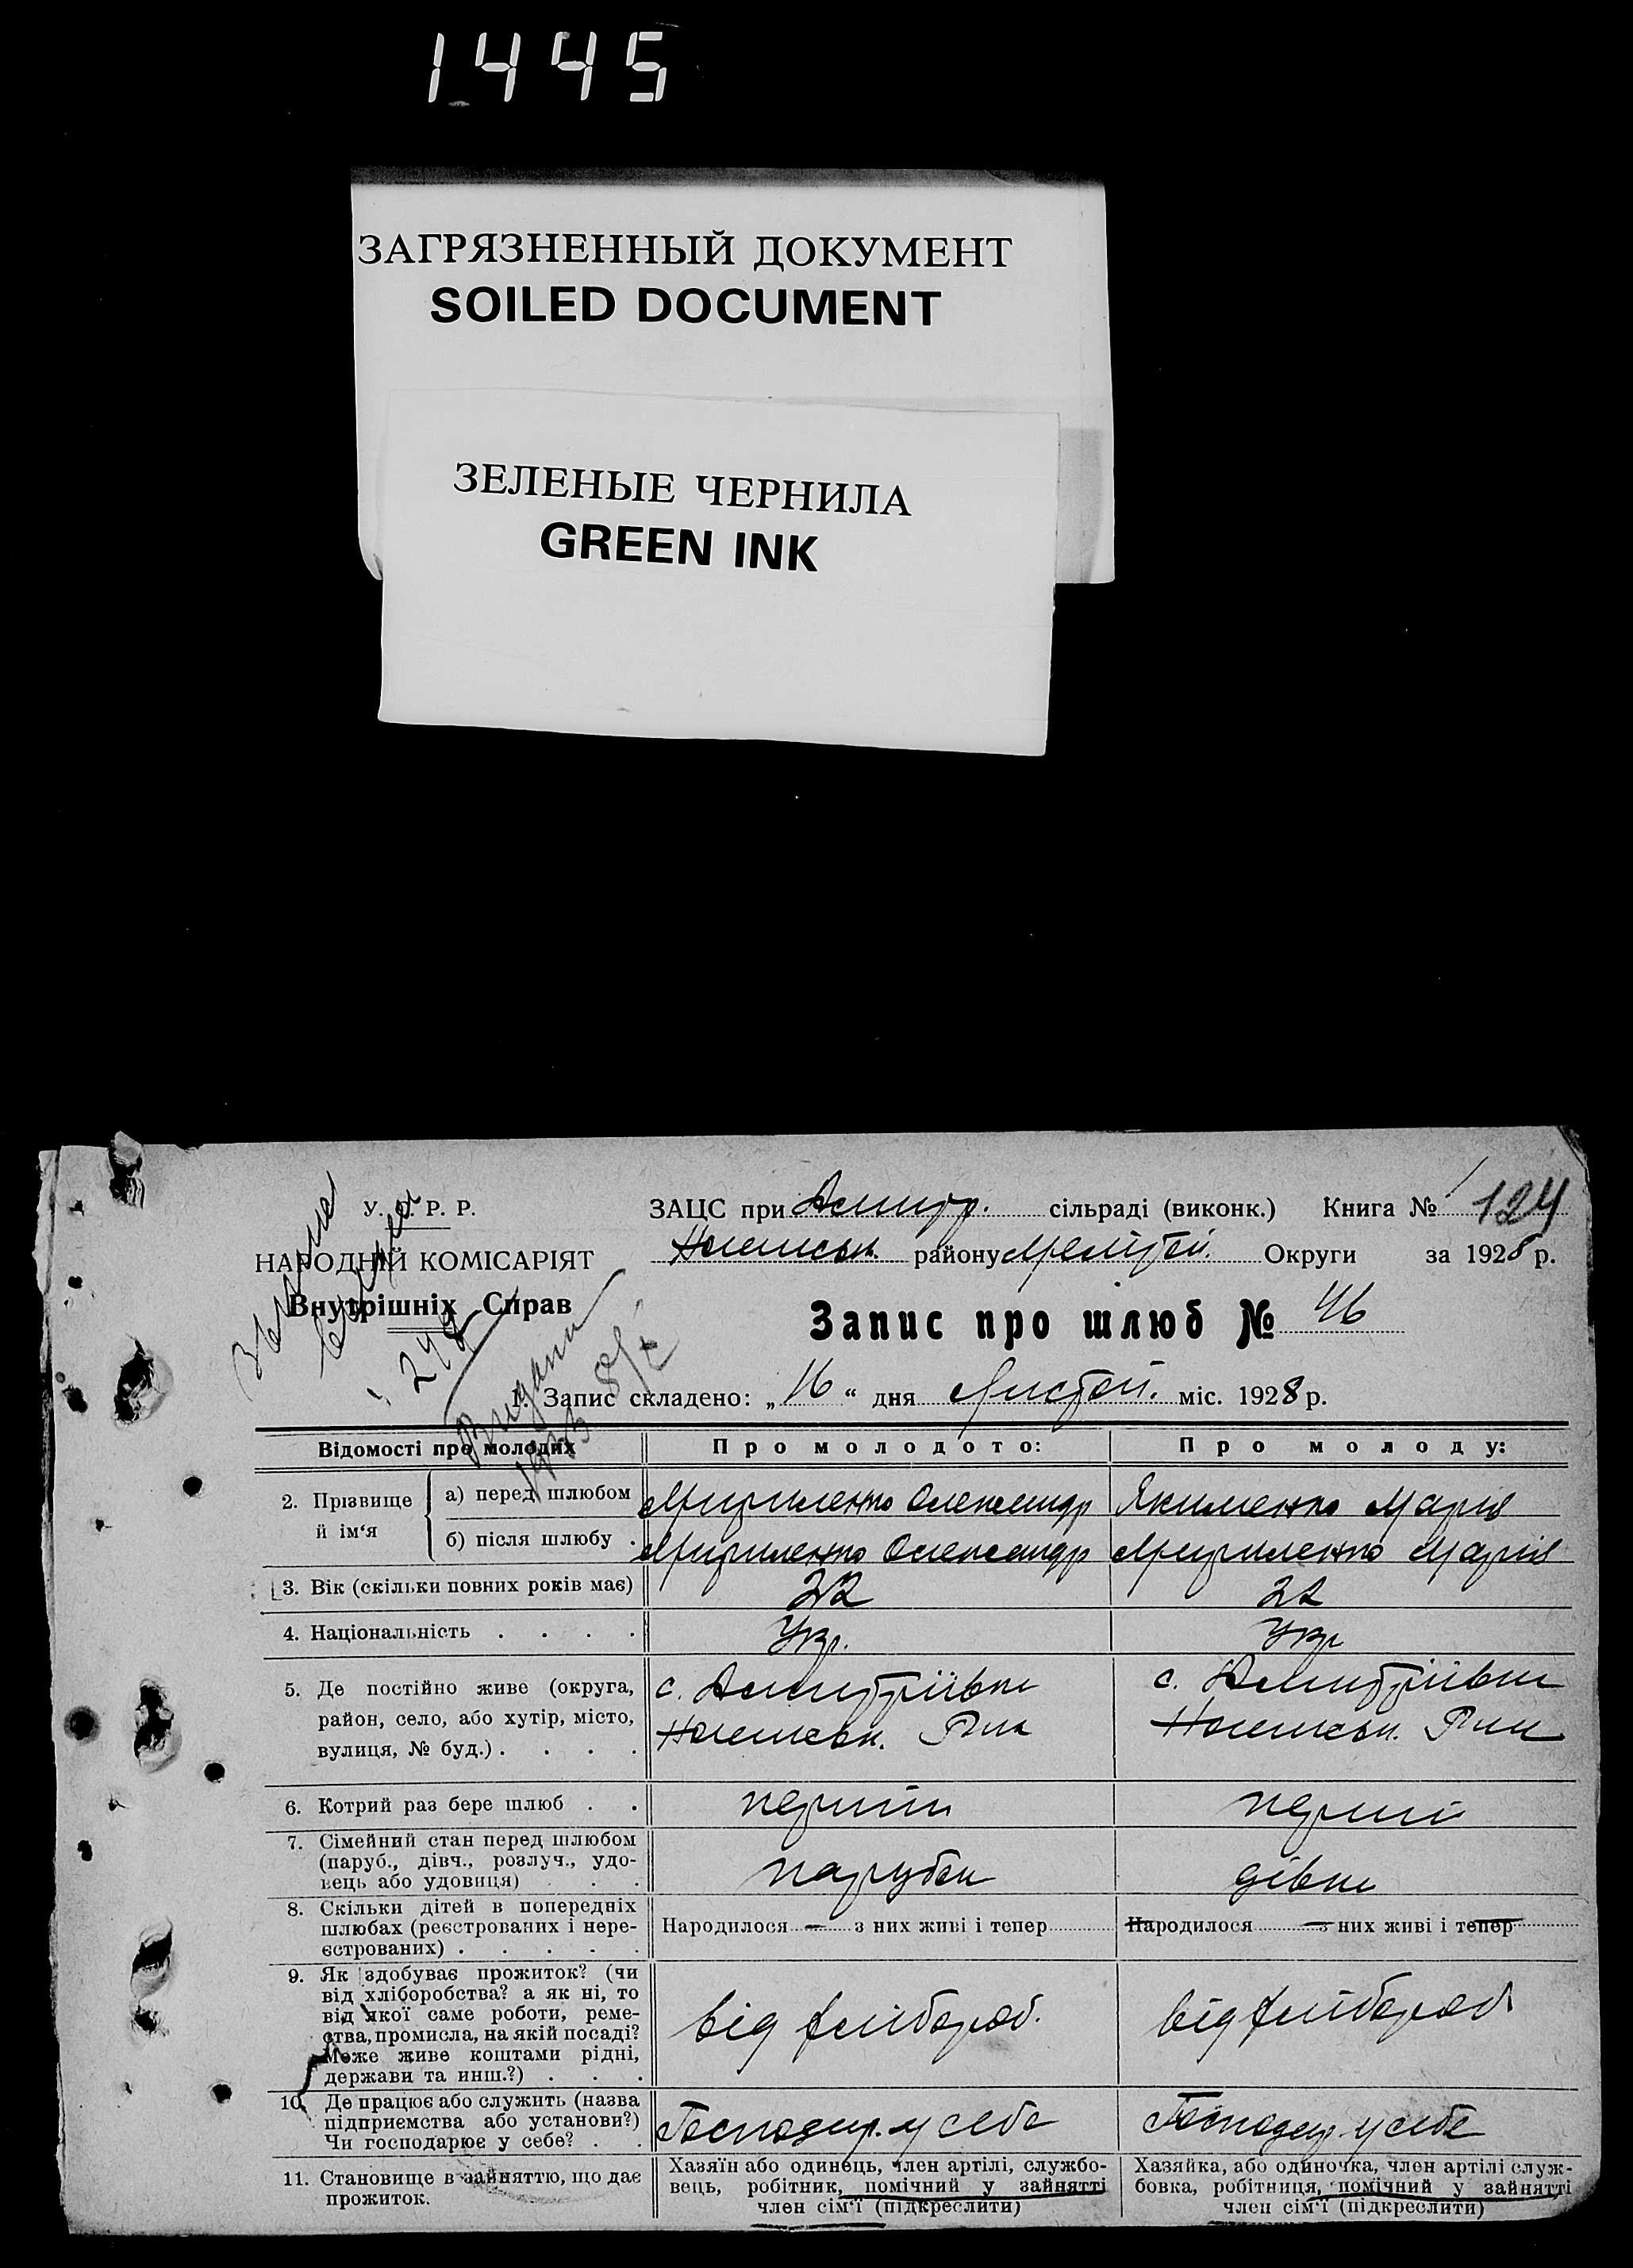 1445
ЗАГРЯЗНЕННЫЙ ДОКУМЕНТ
SOILED DOCUMENT
ЗЕЛЕНЫЕ ЧЕРНИЛА
GREEN INK
У. С. Р. Р.
НАРОДНІЙ КОМІСАРІЯТ
Внутрішніх Справ
248
1933
ЗАЦС при Дмитр. сільраді (виконк.) Книга № 124
району Мелітоп. Округи за 1928 р.
Запис про шлюб № 46
1. Запис складено: „16“ дня Листоп. міс. 1928 р.
Відомості про молодих
Про молодого:
Про молоду:
2. Прізвище й ім‘я
а) перед шлюбом
Мириленко Олександр
Якименко Марія
б) після шлюбу .
Мириленко Олександр
Мириленко Марія
3. Вік (скільки повних років має)
22
22
4. Національність . . . .
Укр.
Укр
5. Де постійно живе (округа,
район, село, або хутір, місто,
вулиця, № буд.) . . . .
с. Дмитріівка
с. Дмитріівка
6. Котрий раз бере шлюб . .
перший
перший
7. Сімейний стан перед шлюбом
(паруб., дівч., розлуч., удо-
вець або удовиця) . . .
парубок
дівка
8. Скільки дітей в попередніх
шлюбах (реєстрованих і нере-
єстрованих) . . . . .
Народилося — з них живі і тепер
Народилося — з них живі і тепер
9. Як здобуває прожиток? (чи
від хліборобства? а як ні, то
від якої саме роботи, реме-
ства, промисла, на якій посаді?
Може живе коштами рідні,
держави та инш.?) . . .
від хлібороб.
від хлібороб
10. Де працює або служить (назва
підприємства або установи?)
Чи господарює у себе? . .
Господар. у себе
Господар. у себе
11. Становище в зайняттю, що дає
прожиток.
Хазяїн або одинець, член артілі, службо-
вець, робітник, помічний у зайнятті
член сім‘ї (підкреслити)
Хазяйка, або одиночка, член артілі служ-
бовка, робітниця, помічний у зайнятті
член сім‘ї (підкреслити)